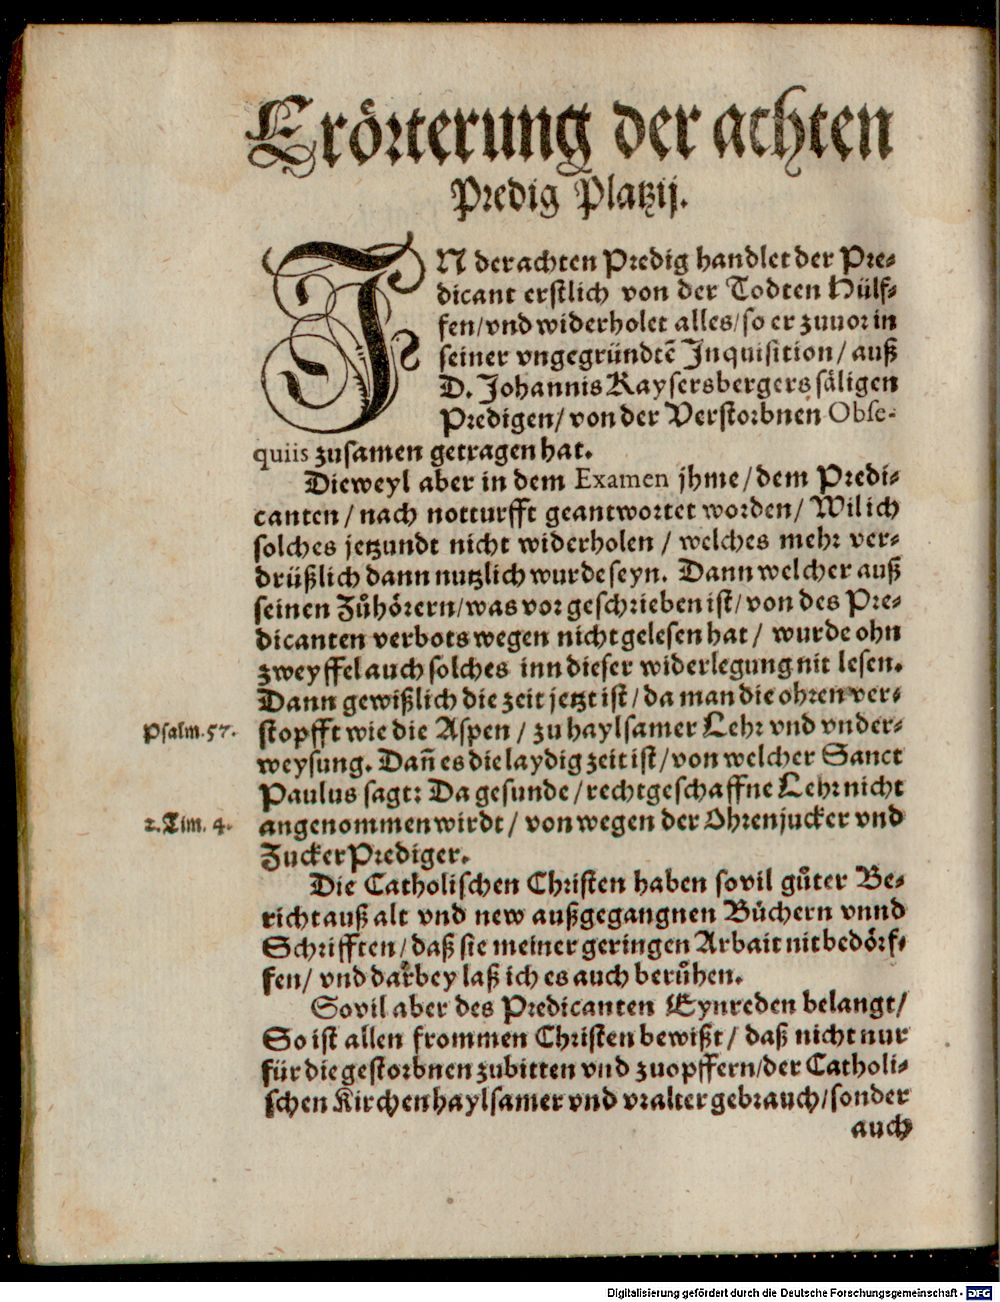 Erörterung der achten
Predig Platzij.
IN der achten Predig handlet der Pre-
dicant erstlich von der Todten Hülf-
fen/ vnd widerholet alles/ so er zuuor in
seiner vngegründtẽ Inquisition/ auß
D. Johannis Kaysersbergers säligen
Predigen/ von der Verstorbnen Obse-
quiis zusamen getragen hat.
Dieweyl aber in dem Examen jhme/ dem Predi-
canten/ nach notturfft geantwortet worden/ Wil ich
solches jetzundt nicht widerholen / welches mehr ver-
drüßlich dann nutzlich wurde seyn. Dann welcher auß
seinen Zůhörern/ was vor geschrieben ist/ von des Pre-
dicanten verbots wegen nicht gelesen hat/ wurde ohn
zweyffel auch solches inn dieser widerlegung nit lesen.
Dann gewißlich die zeit jetzt ist/ da man die ohren ver-
Psalm. 57. stopfft wie die Aspen / zu haylsamer Lehr vnd vnder-
weysung. Dañ es die laydig zeit ist/ von welcher Sanct
Paulus sagt: Da gesunde/ rechtgeschaffne Lehr nicht
2. Tim. 4. angenommen wirdt/ von wegen der Ohrenjucker vnd
Zucker Prediger.
Die Catholischen Christen haben sovil gůter Be-
richt auß alt vnd new außgegangnen Büchern vnnd
Schrifften/ daß sie meiner geringen Arbait nit bedörf-
fen/ vnd darbey laß ich es auch berůhen.
Sovil aber des Predicanten Eynreden belangt/
So ist allen frommen Christen bewißt/ daß nicht nur
für die gestorbnen zubitten vnd zuopffern/ der Catholi-
schen Kirchen haylsamer vnd vralter gebrauch/ sonder
auch
Digitalisierung gefördert durch die Deutsche Forschungsgemeinschaft - DFG